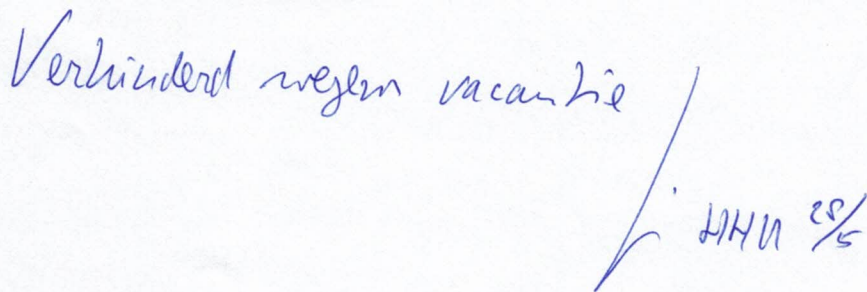 Verhinderd wegen vacantie
28/5